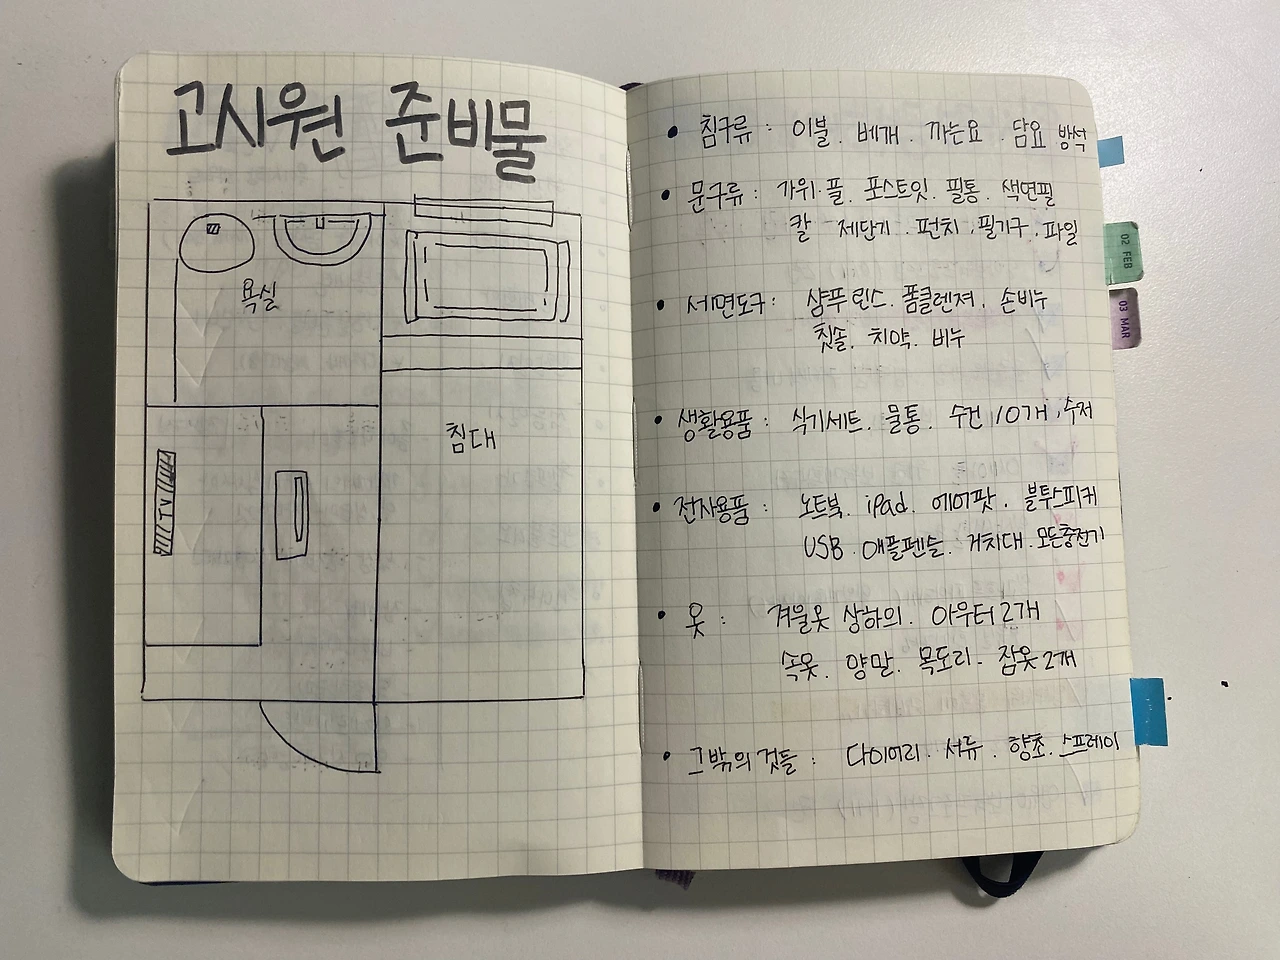 고시원 준비물
욕실
침대
TV
• 침구류 : 이불 . 베개 . 까는요 . 담요 방석
• 문구류 : 가위. 풀. 포스트잇. 필통. 색연필
칼 제단기 . 펀치 . 필기구 . 파일
• 세면도구 : 샴푸 린스. 폼클렌져. 손비누
칫솔. 치약. 비누
• 생활용품 : 식기세트. 물통. 수건 10개 . 수저
• 전자용품 : 노트북. iPad. 에어팟. 블투스피커
USB . 애플펜슬. 거치대. 모든충전기
• 옷 : 겨울옷 상하의. 아우터 2개
속옷. 양말. 목도리. 잠옷 2개
• 그밖의 것들 : 다이어리 . 서류 . 향초. 스프레이
02 FEB
03 MAR